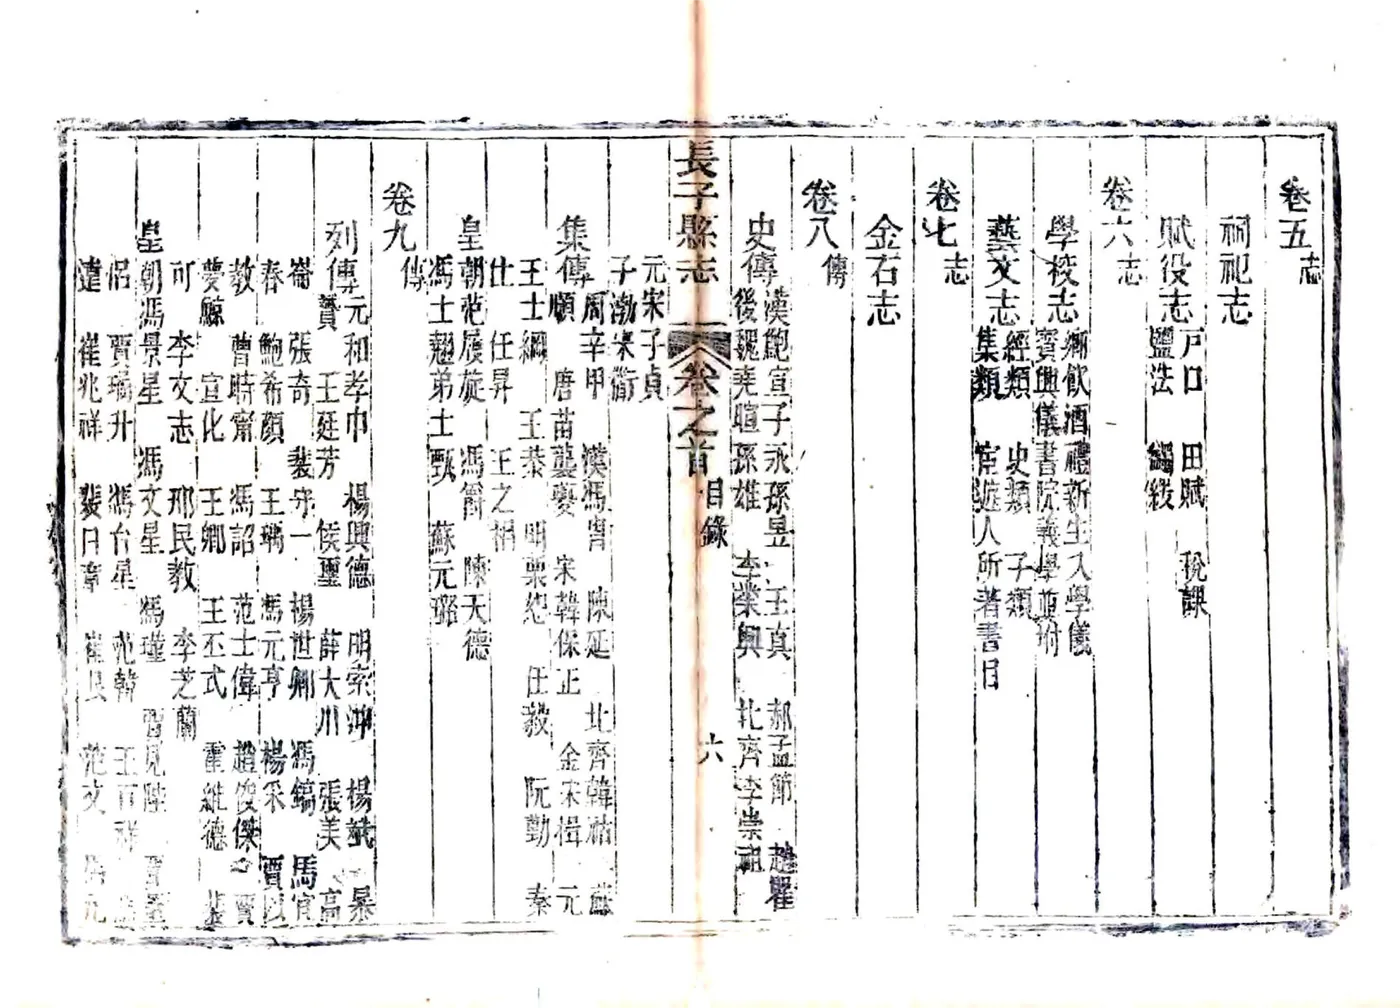 卷五志
祠祀志
賦役志戶口 田賦 稅課
鹽法 蠲緩
卷六志
學校志鄉飲酒禮新生入學儀
賓興儀書院義學並附
藝文志經類 史類 子類
集類 宦遊人所著書目
卷七志
金石志
卷八傳
史傳漢鮑宣子永孫昱 王真 郝孟節 趙瞿
後魏堯暄孫雄 李業興 北齊李崇祖
長子縣志 卷之首 目錄 六
元宋子貞
子渤宋衜
集傳周辛甲 漢馮冑 陳延 北齊韓祐 蘇
順 唐苗藁夔 宋韓保正 金宋楫 元
王士綱 王恭 明栗恕 任毅 阮勤 秦
仕 任昇 王之相
皇朝范履旋 馮爵 陳天德
馮士翹弟士甄 蘇元璐
卷九傳
列傳元和孝巾 楊興德 明索沖 楊斌 暴
贇 王廷芳 侯璽 薛大川 張美 高
崙 張奇 裴守一 楊世卿 馮鎬 馬官
春 鮑希顏 王瑀 馮元亨 楊采 賈以
教 曹時齋 馮詔 范士偉 趙俊傑 賈
夢鯨 宣化 王卿 王丕式 霍維德
可 李文志 邢民教 李芝蘭
皇朝馮景星 馮文星 馮瑾
侶 賈瑀升 馮台星 范韓 王百祥
達 崔兆祥 裴日章 崔艮 范文